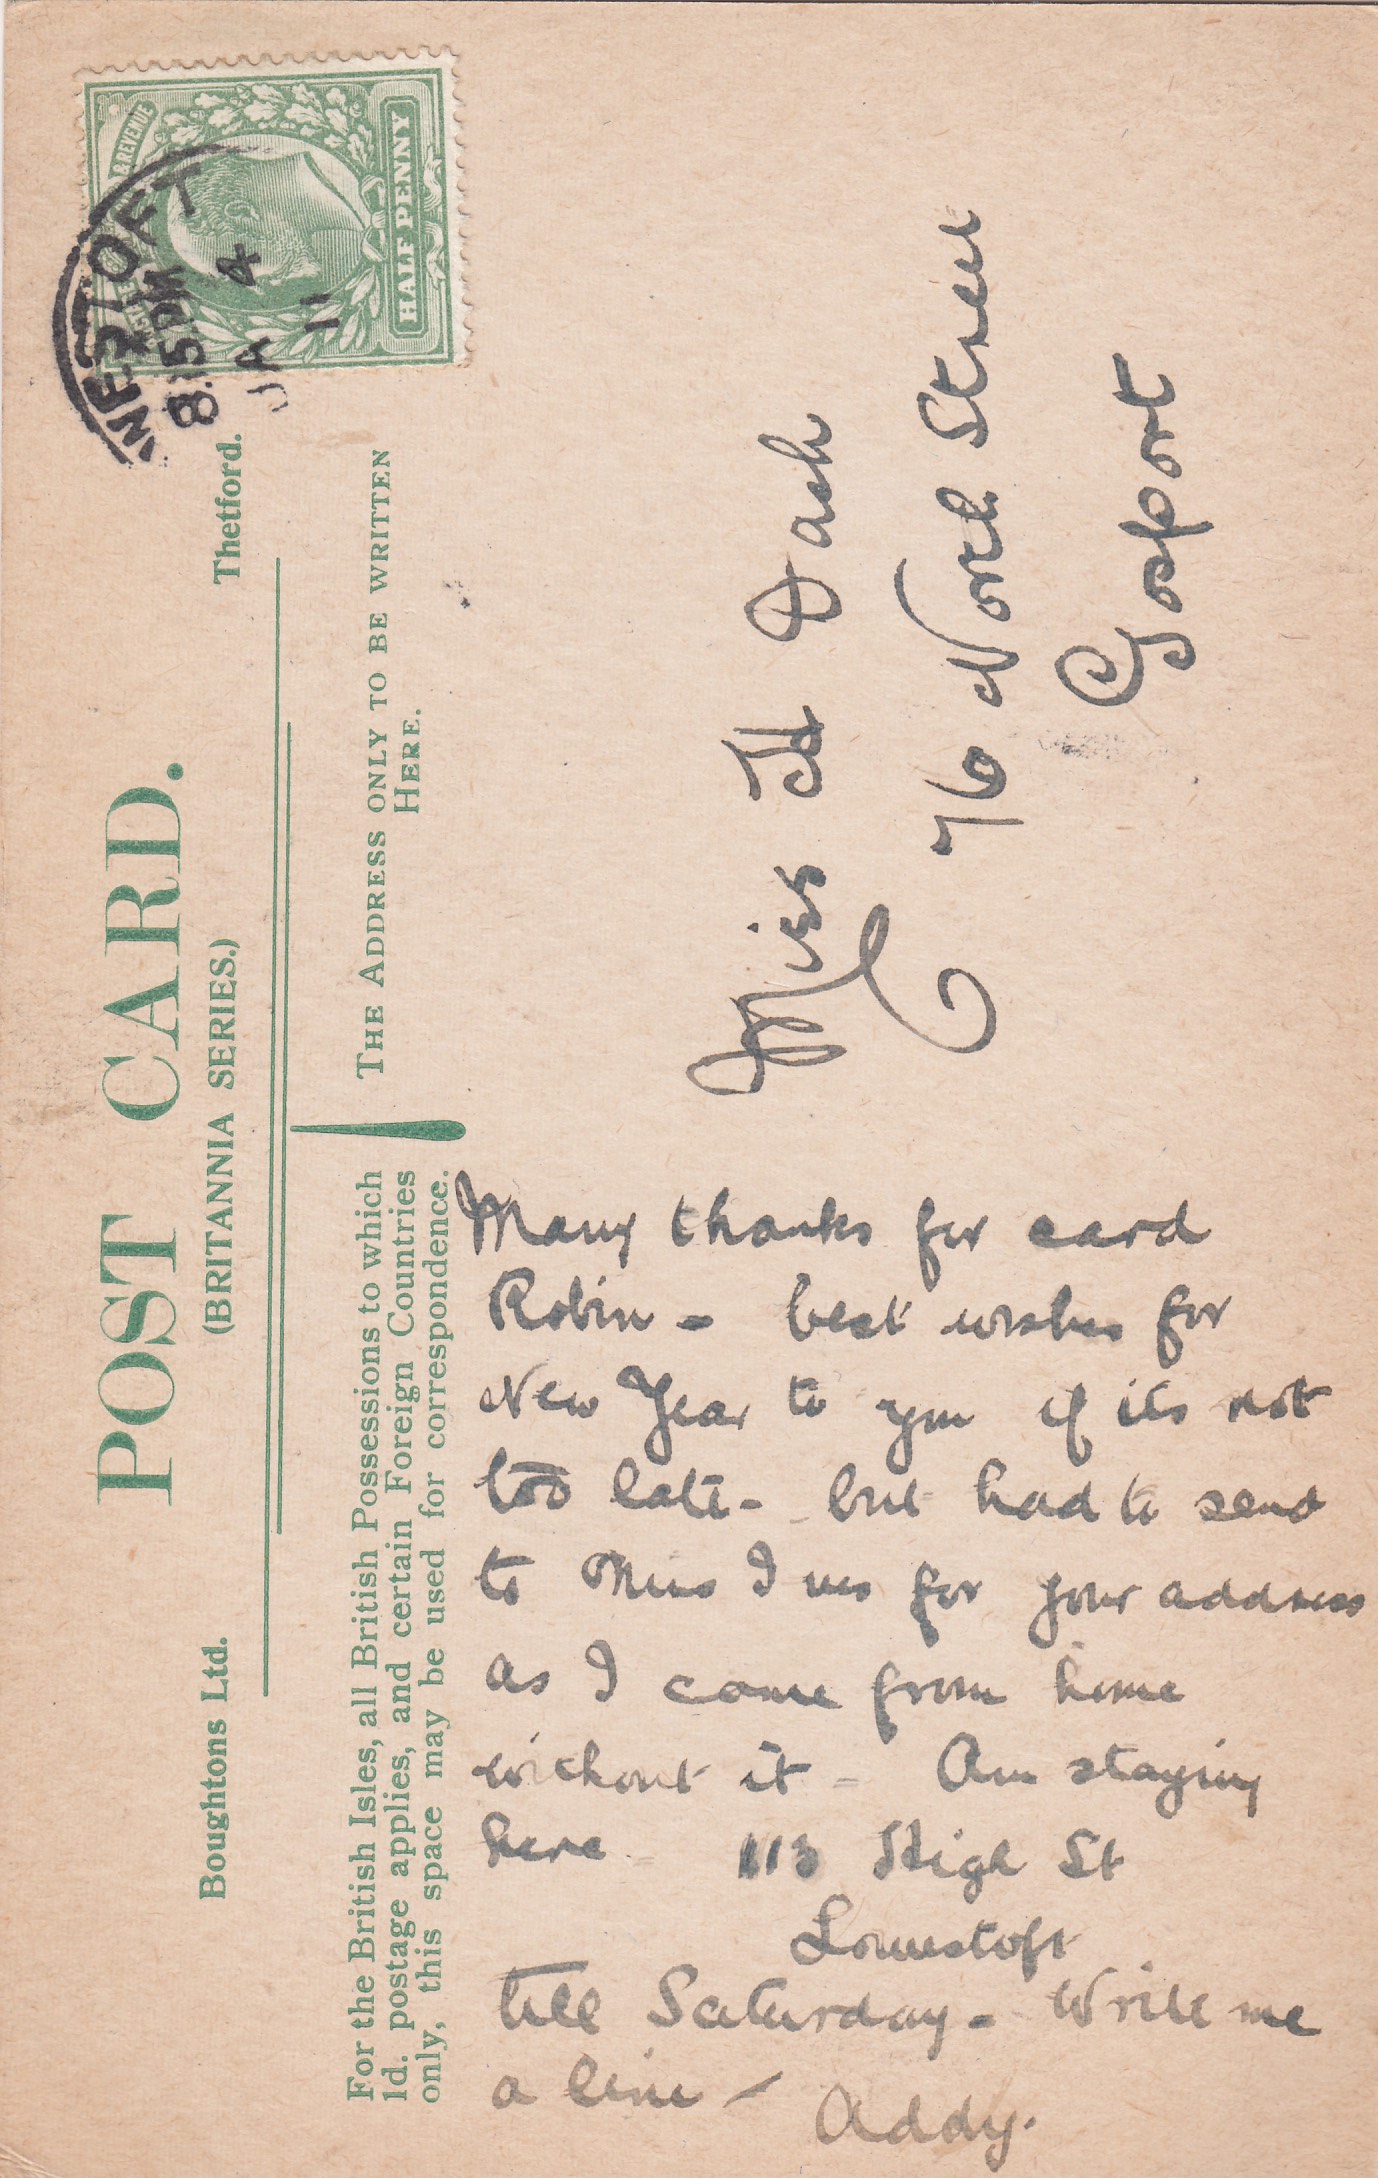 POST CARD.
(BRITANNIA SERIES.)
Boughtons Ltd.
Thetford.
For the British Isles, all British Possessions to which
1d. postage applies, and certain Foreign Countries
only, this space may be used for correspondence.
THE ADDRESS ONLY TO BE WRITTEN
HERE.
& REVENUE
HALF PENNY
WESTOFT
8.15PM
JA 4
11
Many thanks for card
Robin - best wishes for
New Year to you if its not
too late - but had to send
to Miss Ives for your address
as I came from home
without it - Am staying
here 113 High St
Lowestoft
till Saturday - Write me
a line -
Addy.
Miss H Dash
76 North Street
Gosport